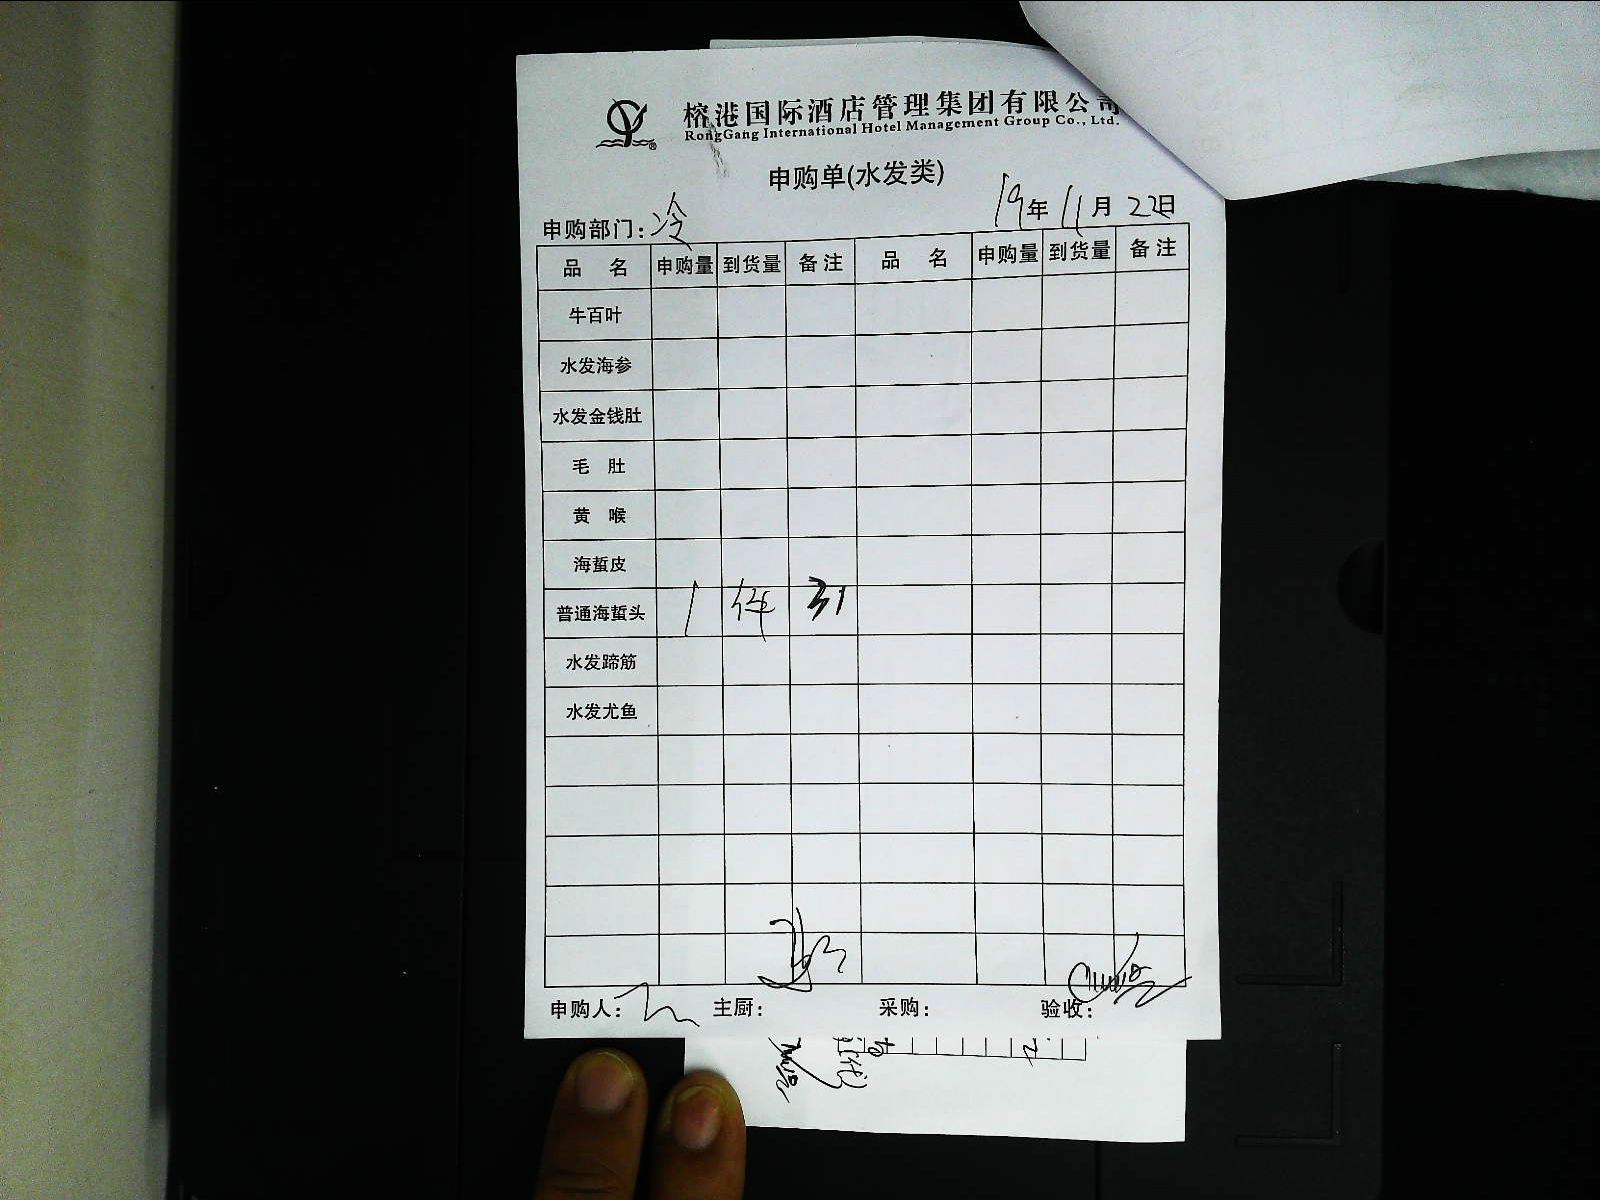 榕港国际酒店管理集团有限公司
RongGang International Hotel Management Group Co., Ltd.
申购单(水发类)
申购部门：冷 19年 11月 22日
品 名 申购量 到货量 备注 品 名 申购量 到货量 备注
牛百叶
水发海参
水发金钱肚
毛 肚
黄 喉
海蜇皮
普通海蜇头 1 件 31
水发蹄筋
水发尤鱼
申购人： 主厨： 采购： 验收：